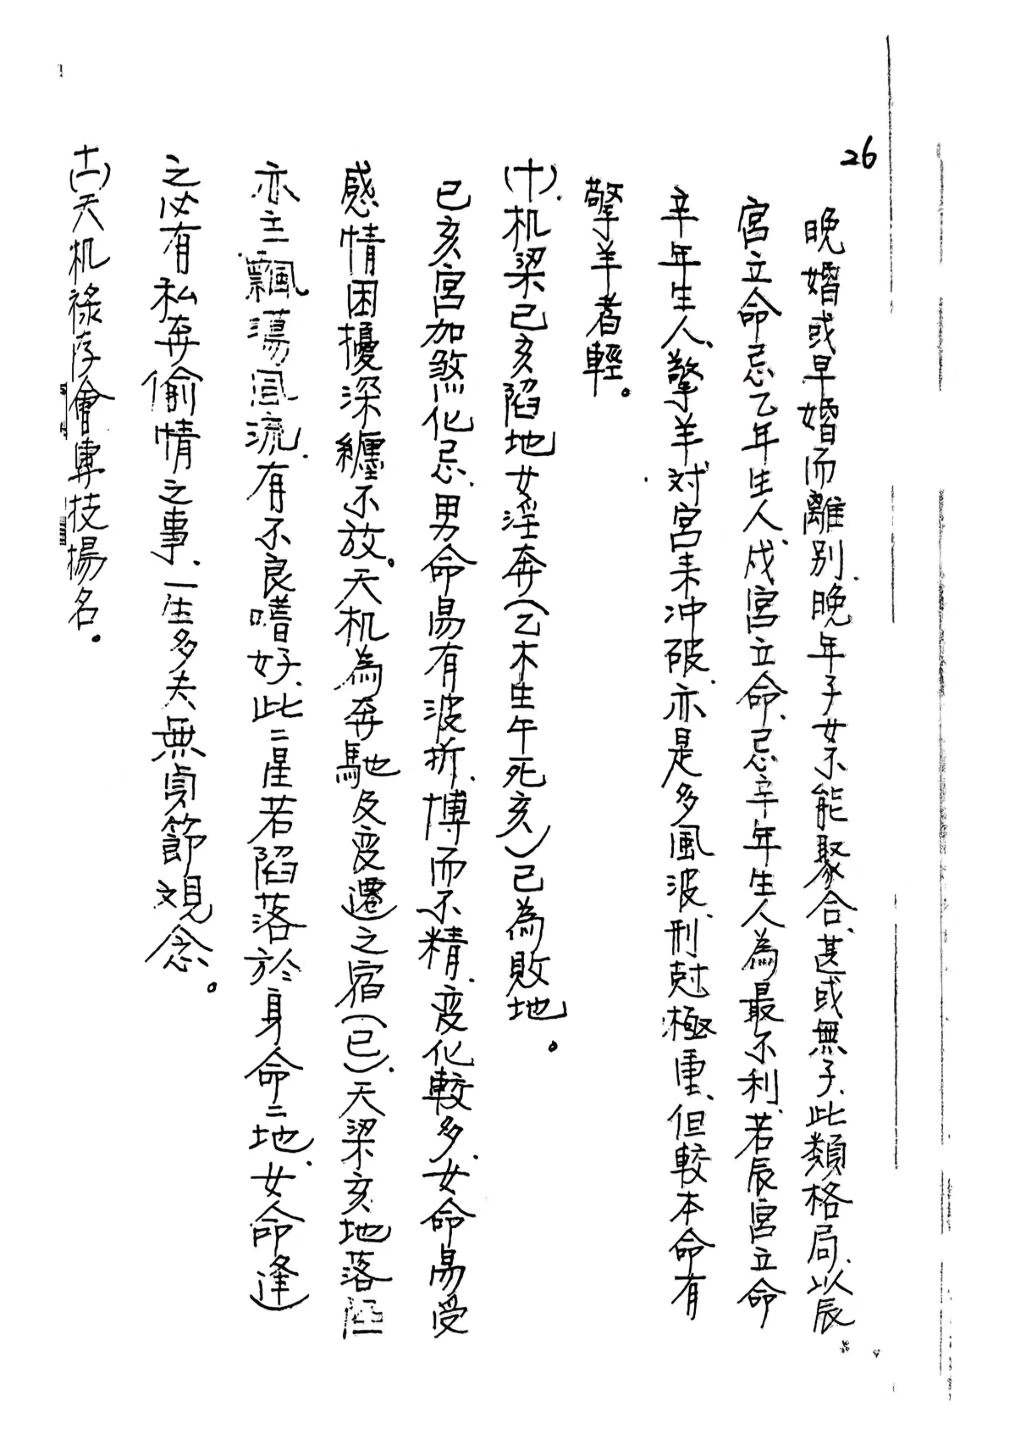 26
晚婚或早婚而離別、晚年子女不能聚合、甚或無子、此類格局、以辰
宮立命忌乙年生人、戌宮立命、忌辛年生人為最不利、若辰宮立命
辛年生人、擎羊对宮来冲破、亦是多風波、刑尅極重、但較本命有
擎羊者輕。
(十)、机梁巳亥陷地女淫奔(乙木生午死亥)已為敗地。
巳亥宮加煞化忌、男命易有波折、博而不精、变化較多、女命易受
感情困擾深纏不放。天机為奔馳及变遷之宿(巳)、天梁亥地落陷
亦主飄蕩風流、有不良嗜好、此二星若陷落於身命二地、女命逢
之必有私奔偷情之事、一生多夫無貞節观念。
(十一)天机祿存會專技揚名。